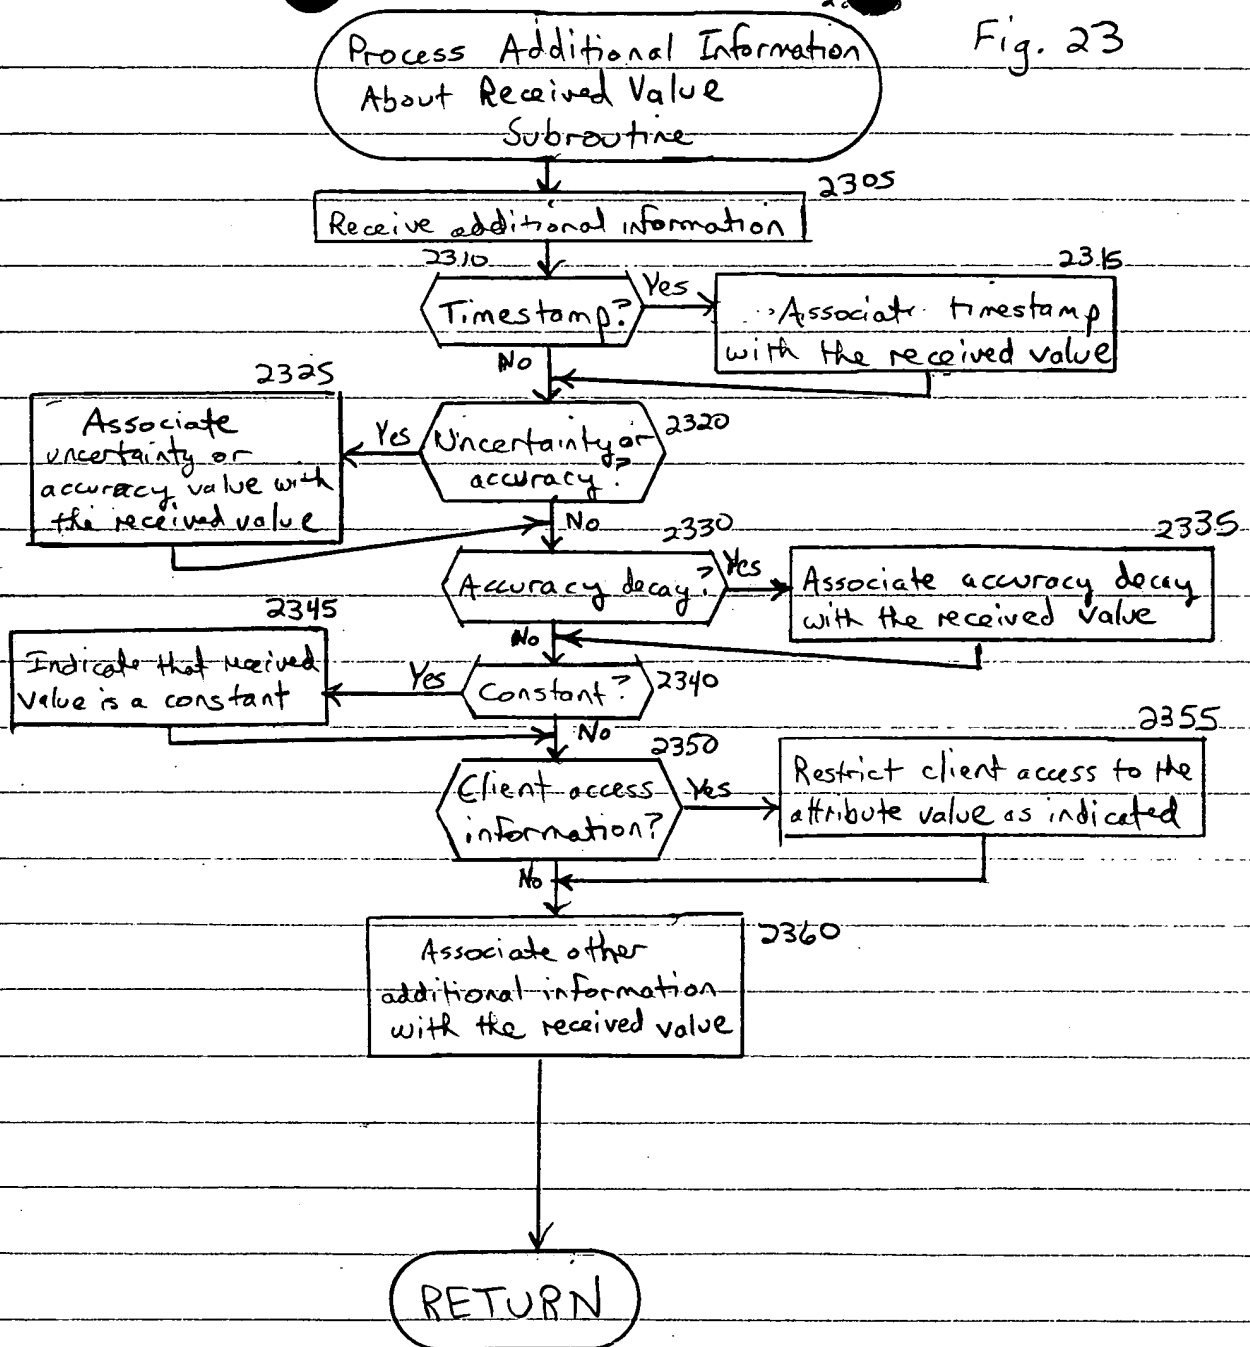 Fig. 23
Process Additional Information
About Received Value
Subroutine
2305
Receive additional information
2310
Timestamp?
Yes
2315
Associate timestamp
with the received value
No
2325
Associate
uncertainty or
accuracy value with
the received value
Yes
Uncertainty or
accuracy?
2320
No
2330
Accuracy decay?
Yes
2335
Associate accuracy decay
with the received value
No
2345
Indicate that received
value is a constant
Yes
Constant?
2340
No
2350
Client access
information?
Yes
2355
Restrict client access to the
attribute value as indicated
No
2360
Associate other
additional information
with the received value
RETURN